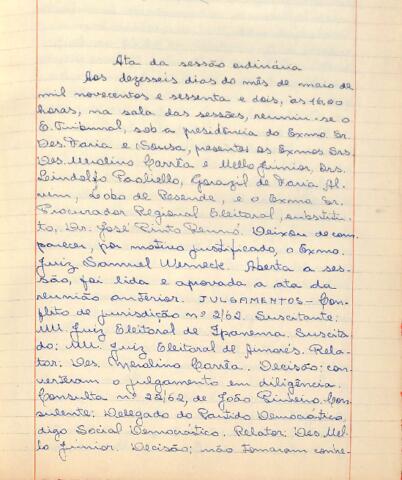 Ata da sessão ordinária
Aos dezesseis dias do mês de maio de
mil novecentos e sessenta e dois, às 16,00
horas, na sala das sessões, reuniu-se o
E. Tribunal, sob a presidência do Exmo. Sr.
Des. Faria e Sousa, presentes os Exmos. Srs.
Des. Merolino Corrêa e Mello Júnior, Drs.
Lindolfo Paoliello, Gorazil de Faria Al-
vim, Lobo de Resende, e o Exmo. Sr.
Procurador Regional Eleitoral, substitu-
to, Dr. José Pinto Rennó. Deixou de com-
parecer, por motivo justificado, o Exmo.
Juiz Samuel Werneck. Aberta a ses-
são, foi lida e aprovada a ata da
reunião anterior. JULGAMENTOS - Con-
flito de jurisdição nº 2/62. Suscitante:
MM. Juiz Eleitoral de Ipanema. Suscita-
do: MM. Juiz Eleitoral de Aimorés. Rela-
tor: Des. Merolino Corrêa. Decisão: con-
verteram o julgamento em diligência.
Consulta nº 25/62, de João Pinheiro. Con-
sulente: Delegado do Partido Democrático,
digo Social Democrático. Relator: Des. Mel-
lo Júnior. Decisão: não tomaram conhe-